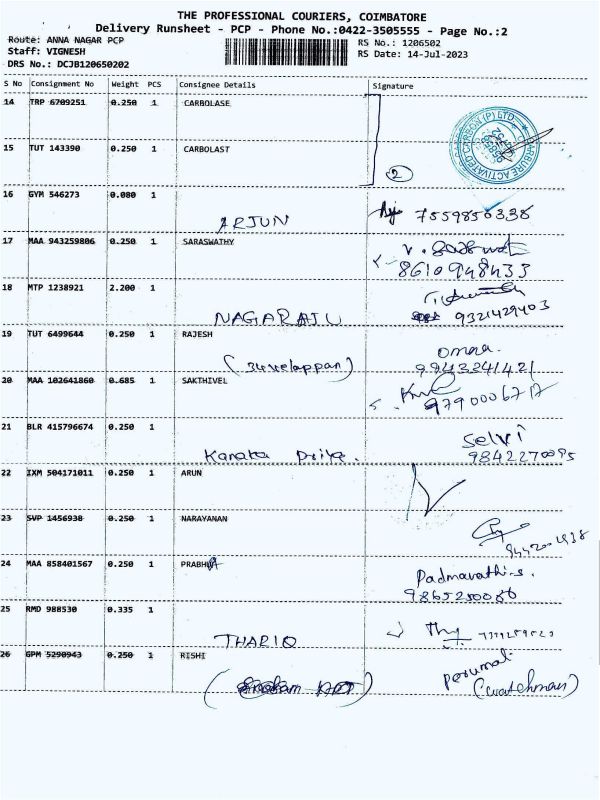 THE PROFESSIONAL COURIERS, COIMBATORE
Delivery Runsheet - PCP - Phone No.:0422-3505555 - Page No.:2
Route: ANNA NAGAR PCP
RS No.: 1206502
Staff: VIGNESH
RS Date: 14-Jul-2023
DRS No.: DCJB120650202
S No Consignment No Weight PCS Consignee Details Signature
14 TRP 6709251 0.250 1 CARBOLASE
15 TUT 143390 0.250 1 CARBOLAST
2
CARBURE ACTIVATED CARBON (P) LTD
16 GYM 546273 0.080 1
ARJUN 7559850338
17 MAA 943259806 0.250 1 SARASWATHY
8610948433
18 MTP 1238921 2.200 1
NAGARAJU 9321429403
19 TUT 6499644 0.250 1 RAJESH
9943341421
20 MAA 102641860 0.685 1 SAKTHIVEL
21 BLR 415796674 0.250 1 Selvi
Kanaka Priya. 9842270095
22 IXM 504171011 0.250 1 ARUN
23 SVP 1456938 0.250 1 NARAYANAN
24 MAA 858401567 0.250 1 PRABHU
Padmavathi.s.
25 RMD 988530 0.335 1
THARIQ
26 GPM 5290943 0.250 1 RISHI
Perumal
(watchman)